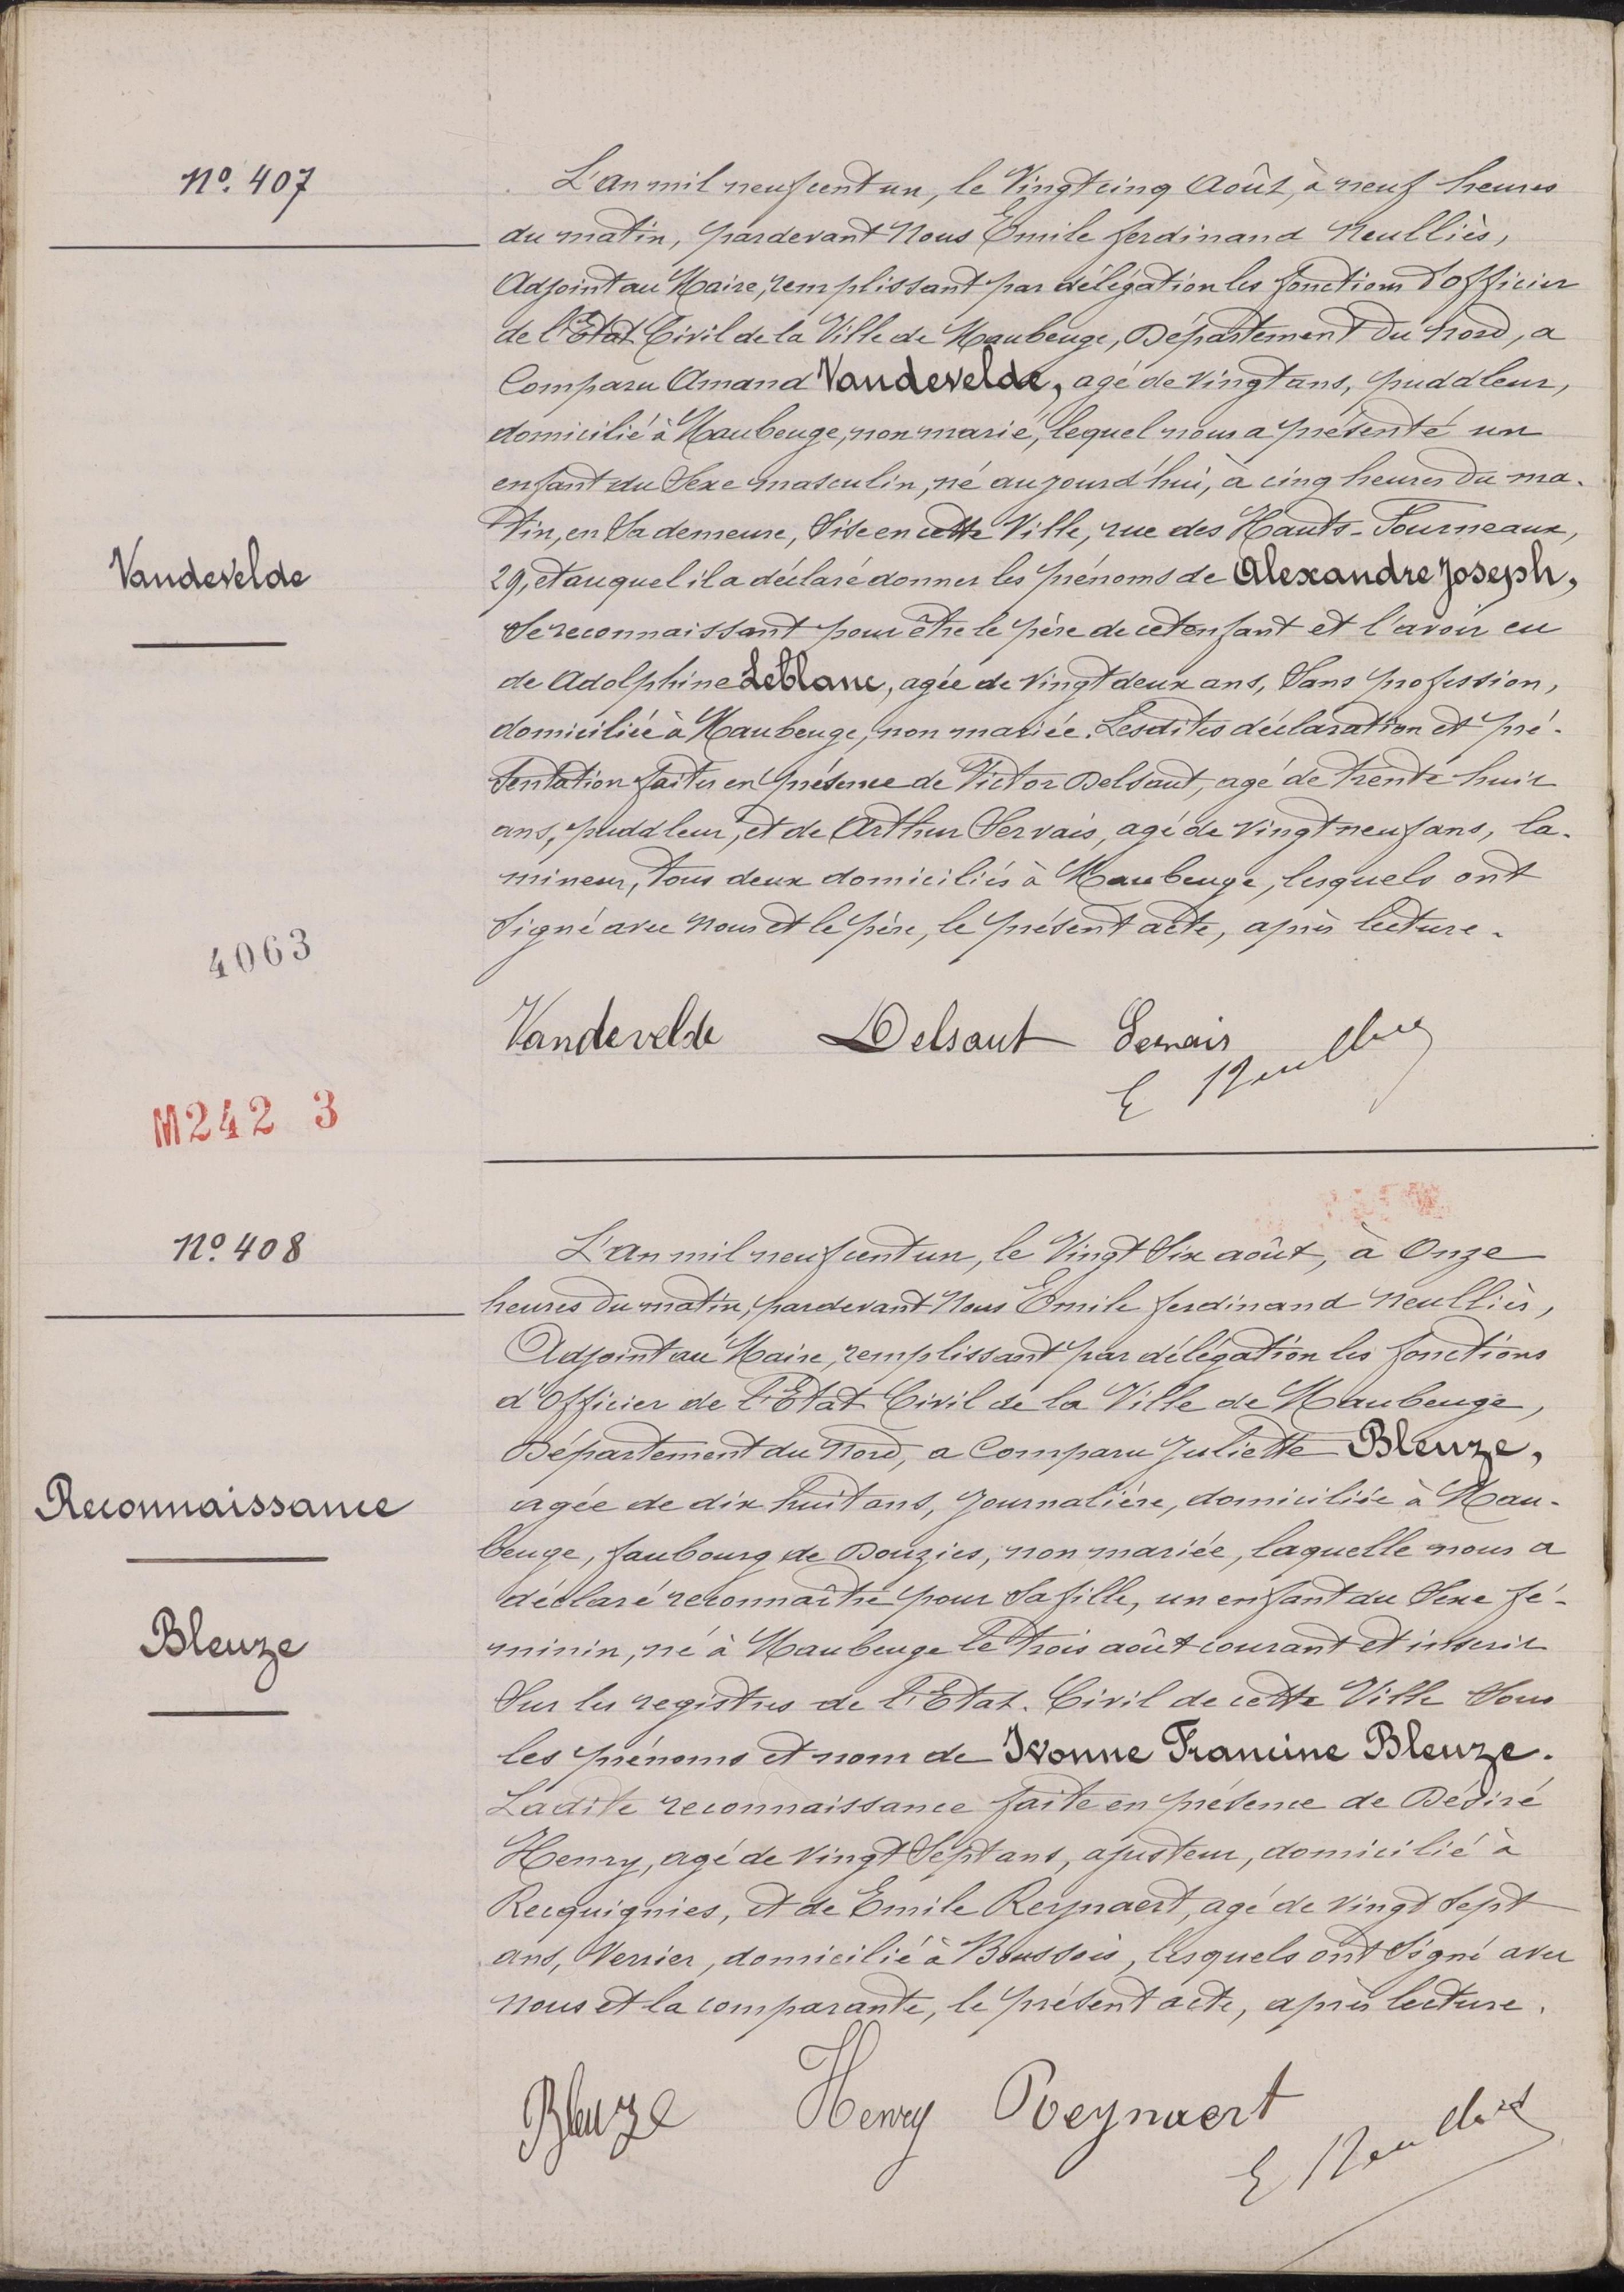 No. 407
L'an mil neuf cent un, le Vingt cinq Août, à neuf heures
du matin, pardevant Nous Emile ferdinand Neulliès,
Adjoint au Maire, remplissant par délégation les fonctions d'officier
de l'Etat Civil de la Ville de Maubeuge, Département du Nord, a
Comparu Amand Vandevelde, agé de vingt ans, puddleur,
domicilié à Maubeuge, non marié, lequel nous a présenté un
enfant du Sexe masculin, né aujourd'hui, à cinq heures du ma-
tin, en Sa demeure, Sise en cette Ville, rue des Hauts-Fourneaux,
Vandevelde
29, et auquel il a déclaré donner les prénoms de Alexandre Joseph,
Se reconnaissant pour être le père de cet enfant et l'avoir eu
de Adolphine Leblanc, agée de vingt deux ans, Sans profession,
domiciliée à Maubeuge, non mariée. Lesdites déclaration et pré-
sentation faites en présence de Victor Delsaut, agé de trente huit
ans, puddleur, et de Arthur Servais, agé de vingt neuf ans, la-
mineur, tous deux domiciliés à Maubeuge, lesquels ont
Signé avec Nous et le père, le présent acte, après lecture.
4063
Vandevelde Delsaut Servais
E Neulliès
M242 3
No. 408
L'an mil neuf cent un, le Vingt Six août, à Onze
heures du matin, pardevant Nous Emile ferdinand Neulliès,
Adjoint au Maire, remplissant par délégation les fonctions
d'Officier de l'Etat Civil de la Ville de Maubeuge,
Département du Nord, a Comparu Juliette Bleuze,
Reconnaissance
agée de dix huit ans, Journalière, domiciliée à Mau-
beuge, faubourg de Douzies, non mariée, laquelle nous a
déclaré reconnaître pour Sa fille, un enfant du Sexe fé-
Bleuze
minin, né à Maubeuge le trois août courant et inscrit
Sur les registres de l'Etat. Civil de cette Ville Sous
les prénoms et nom de Ivonne Francine Bleuze.
Ladite reconnaissance faite en présence de Désiré
Henry, agé de vingt Sept ans, ajusteur, domicilié à
Recquignies, et de Emile Reynaert, agé de vingt Sept
ans, Verrier, domicilié à Boussois, lesquels ont Signé avec
Nous et la comparante, le présent acte, après lecture.
Bleuze Henry Reynaert
E Neulliès